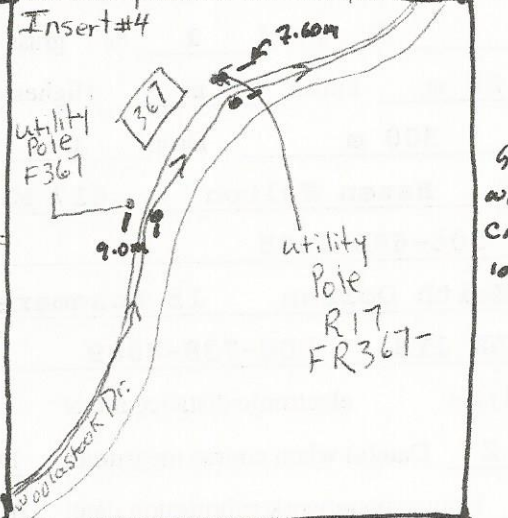 Insert#4
7.60m
367
utility
Pole
F367
9.0m
utility
Pole
R17
FR367-
Woolastook Dr.